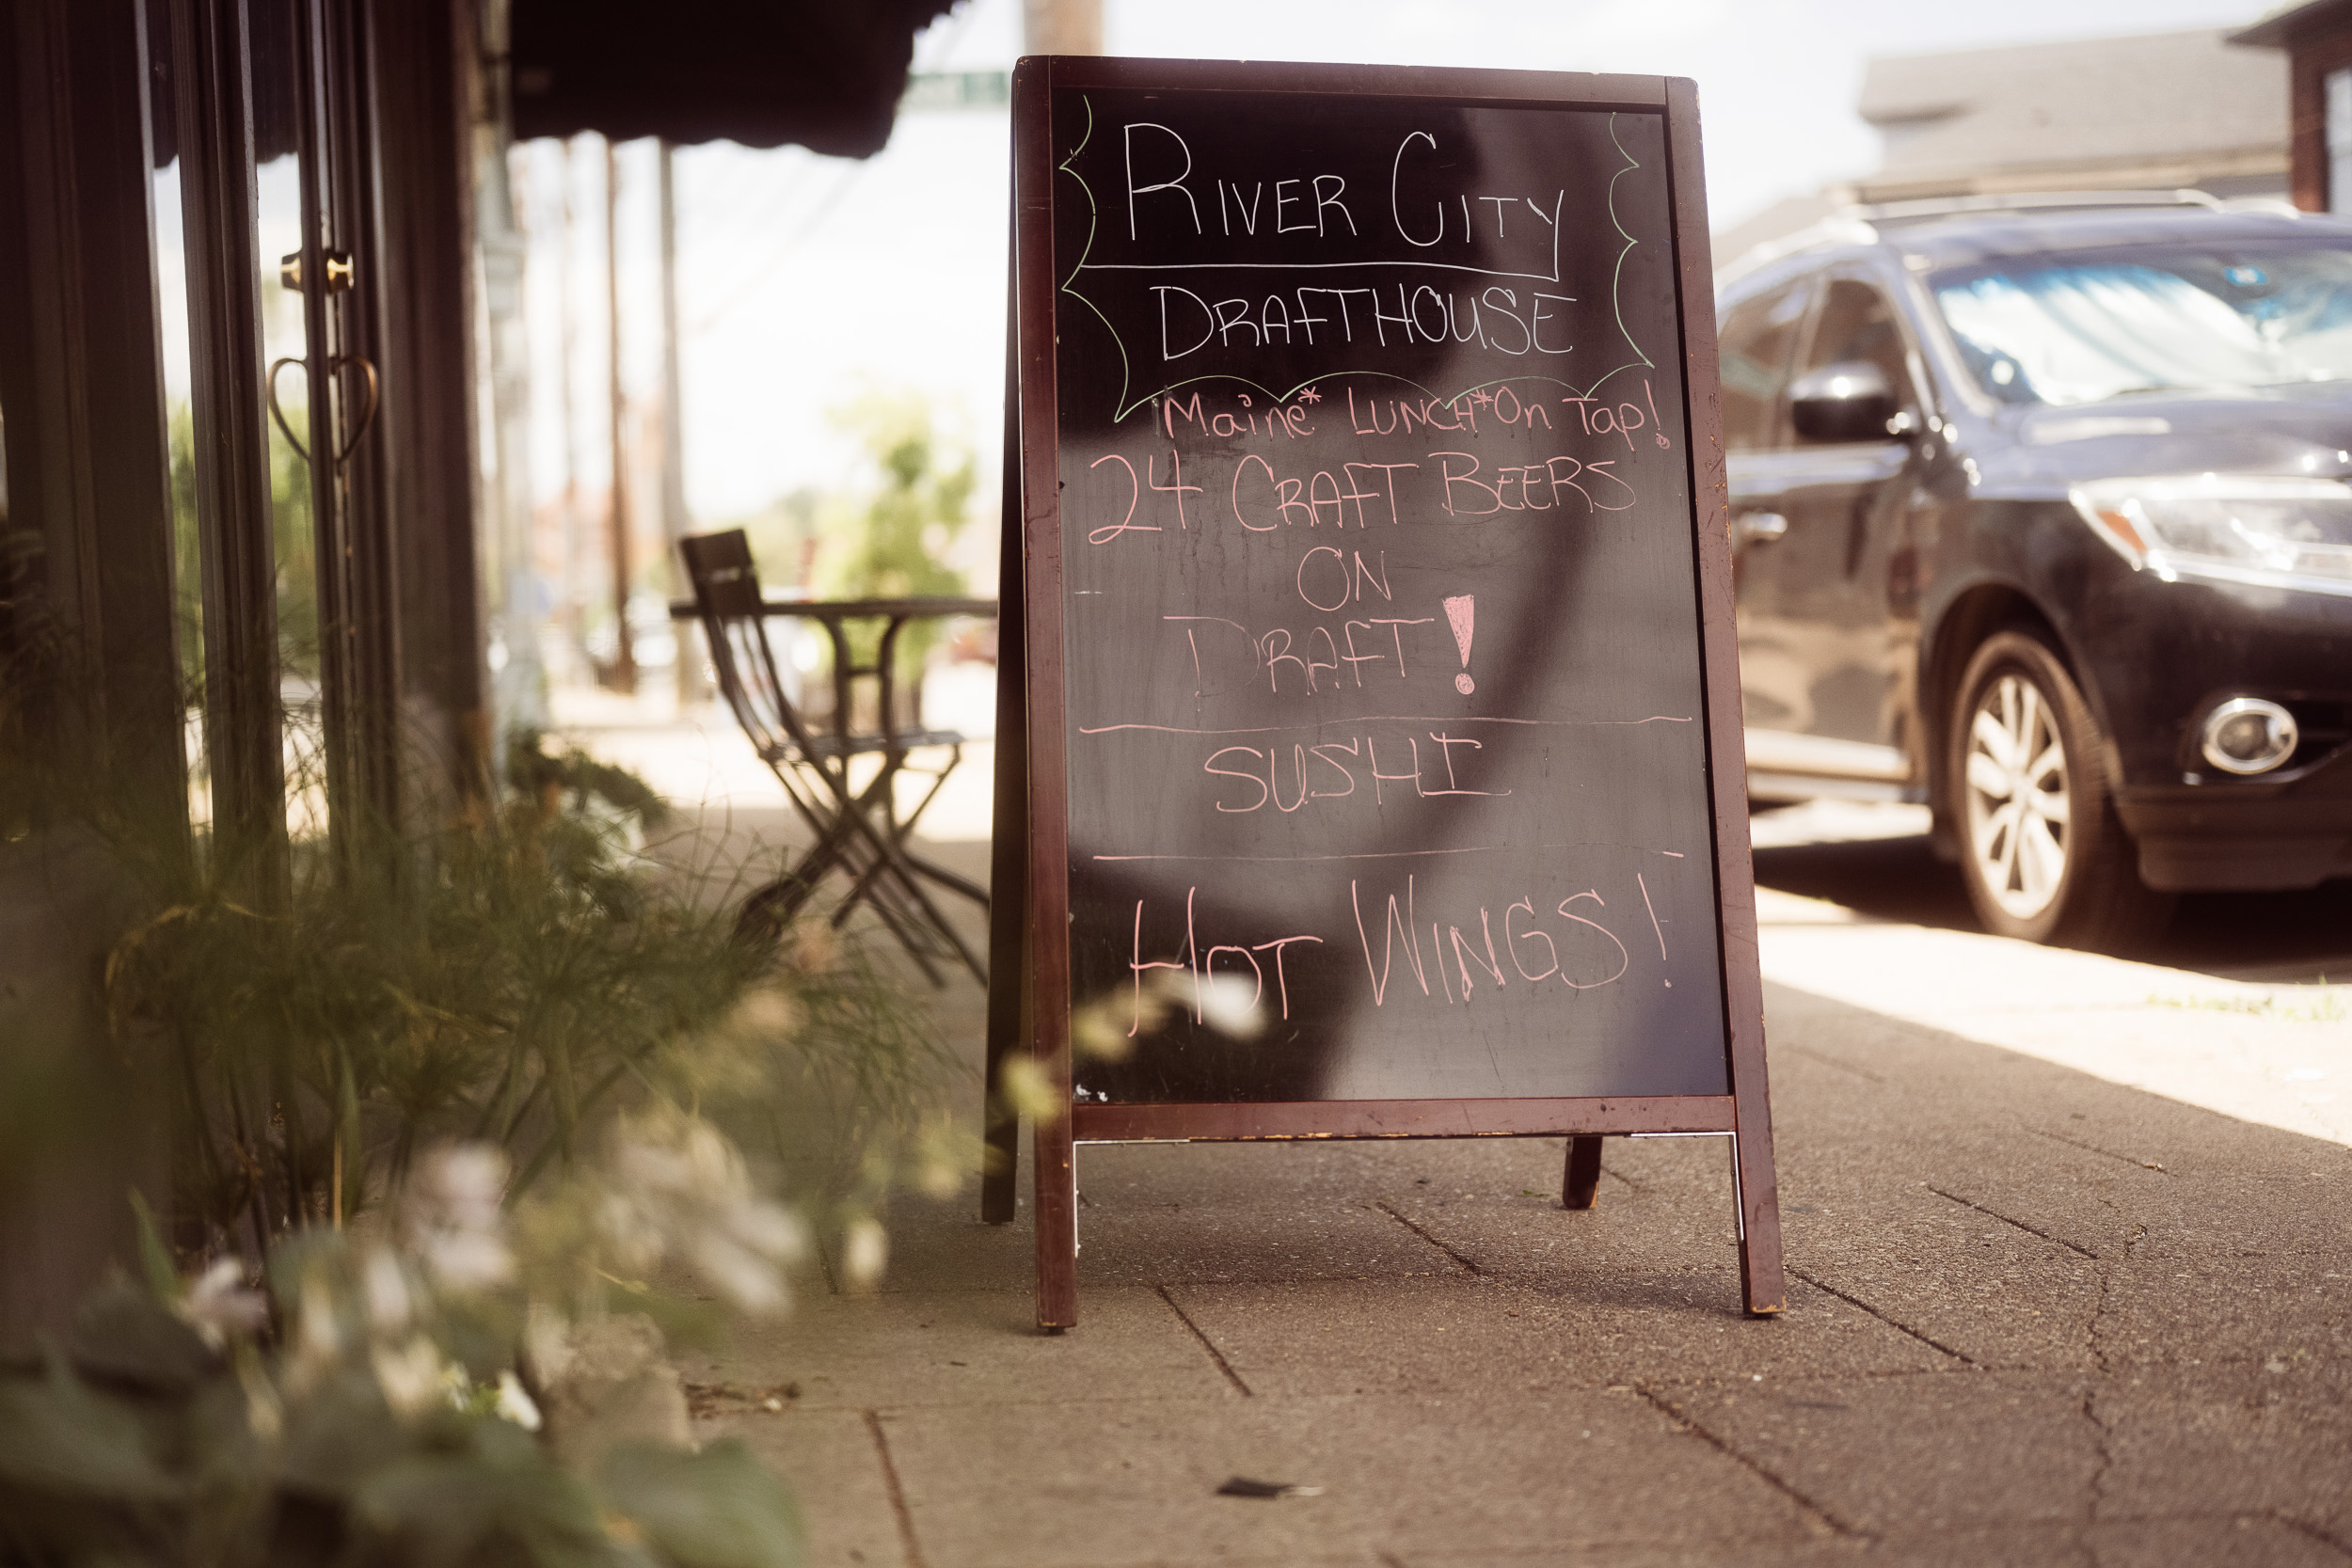 RIVER CITY
DRAFTHOUSE
Maine* LUNCH* On Tap!
24 CRAFT BEERS
ON
DRAFT!
SUSHI
HOT WINGS!